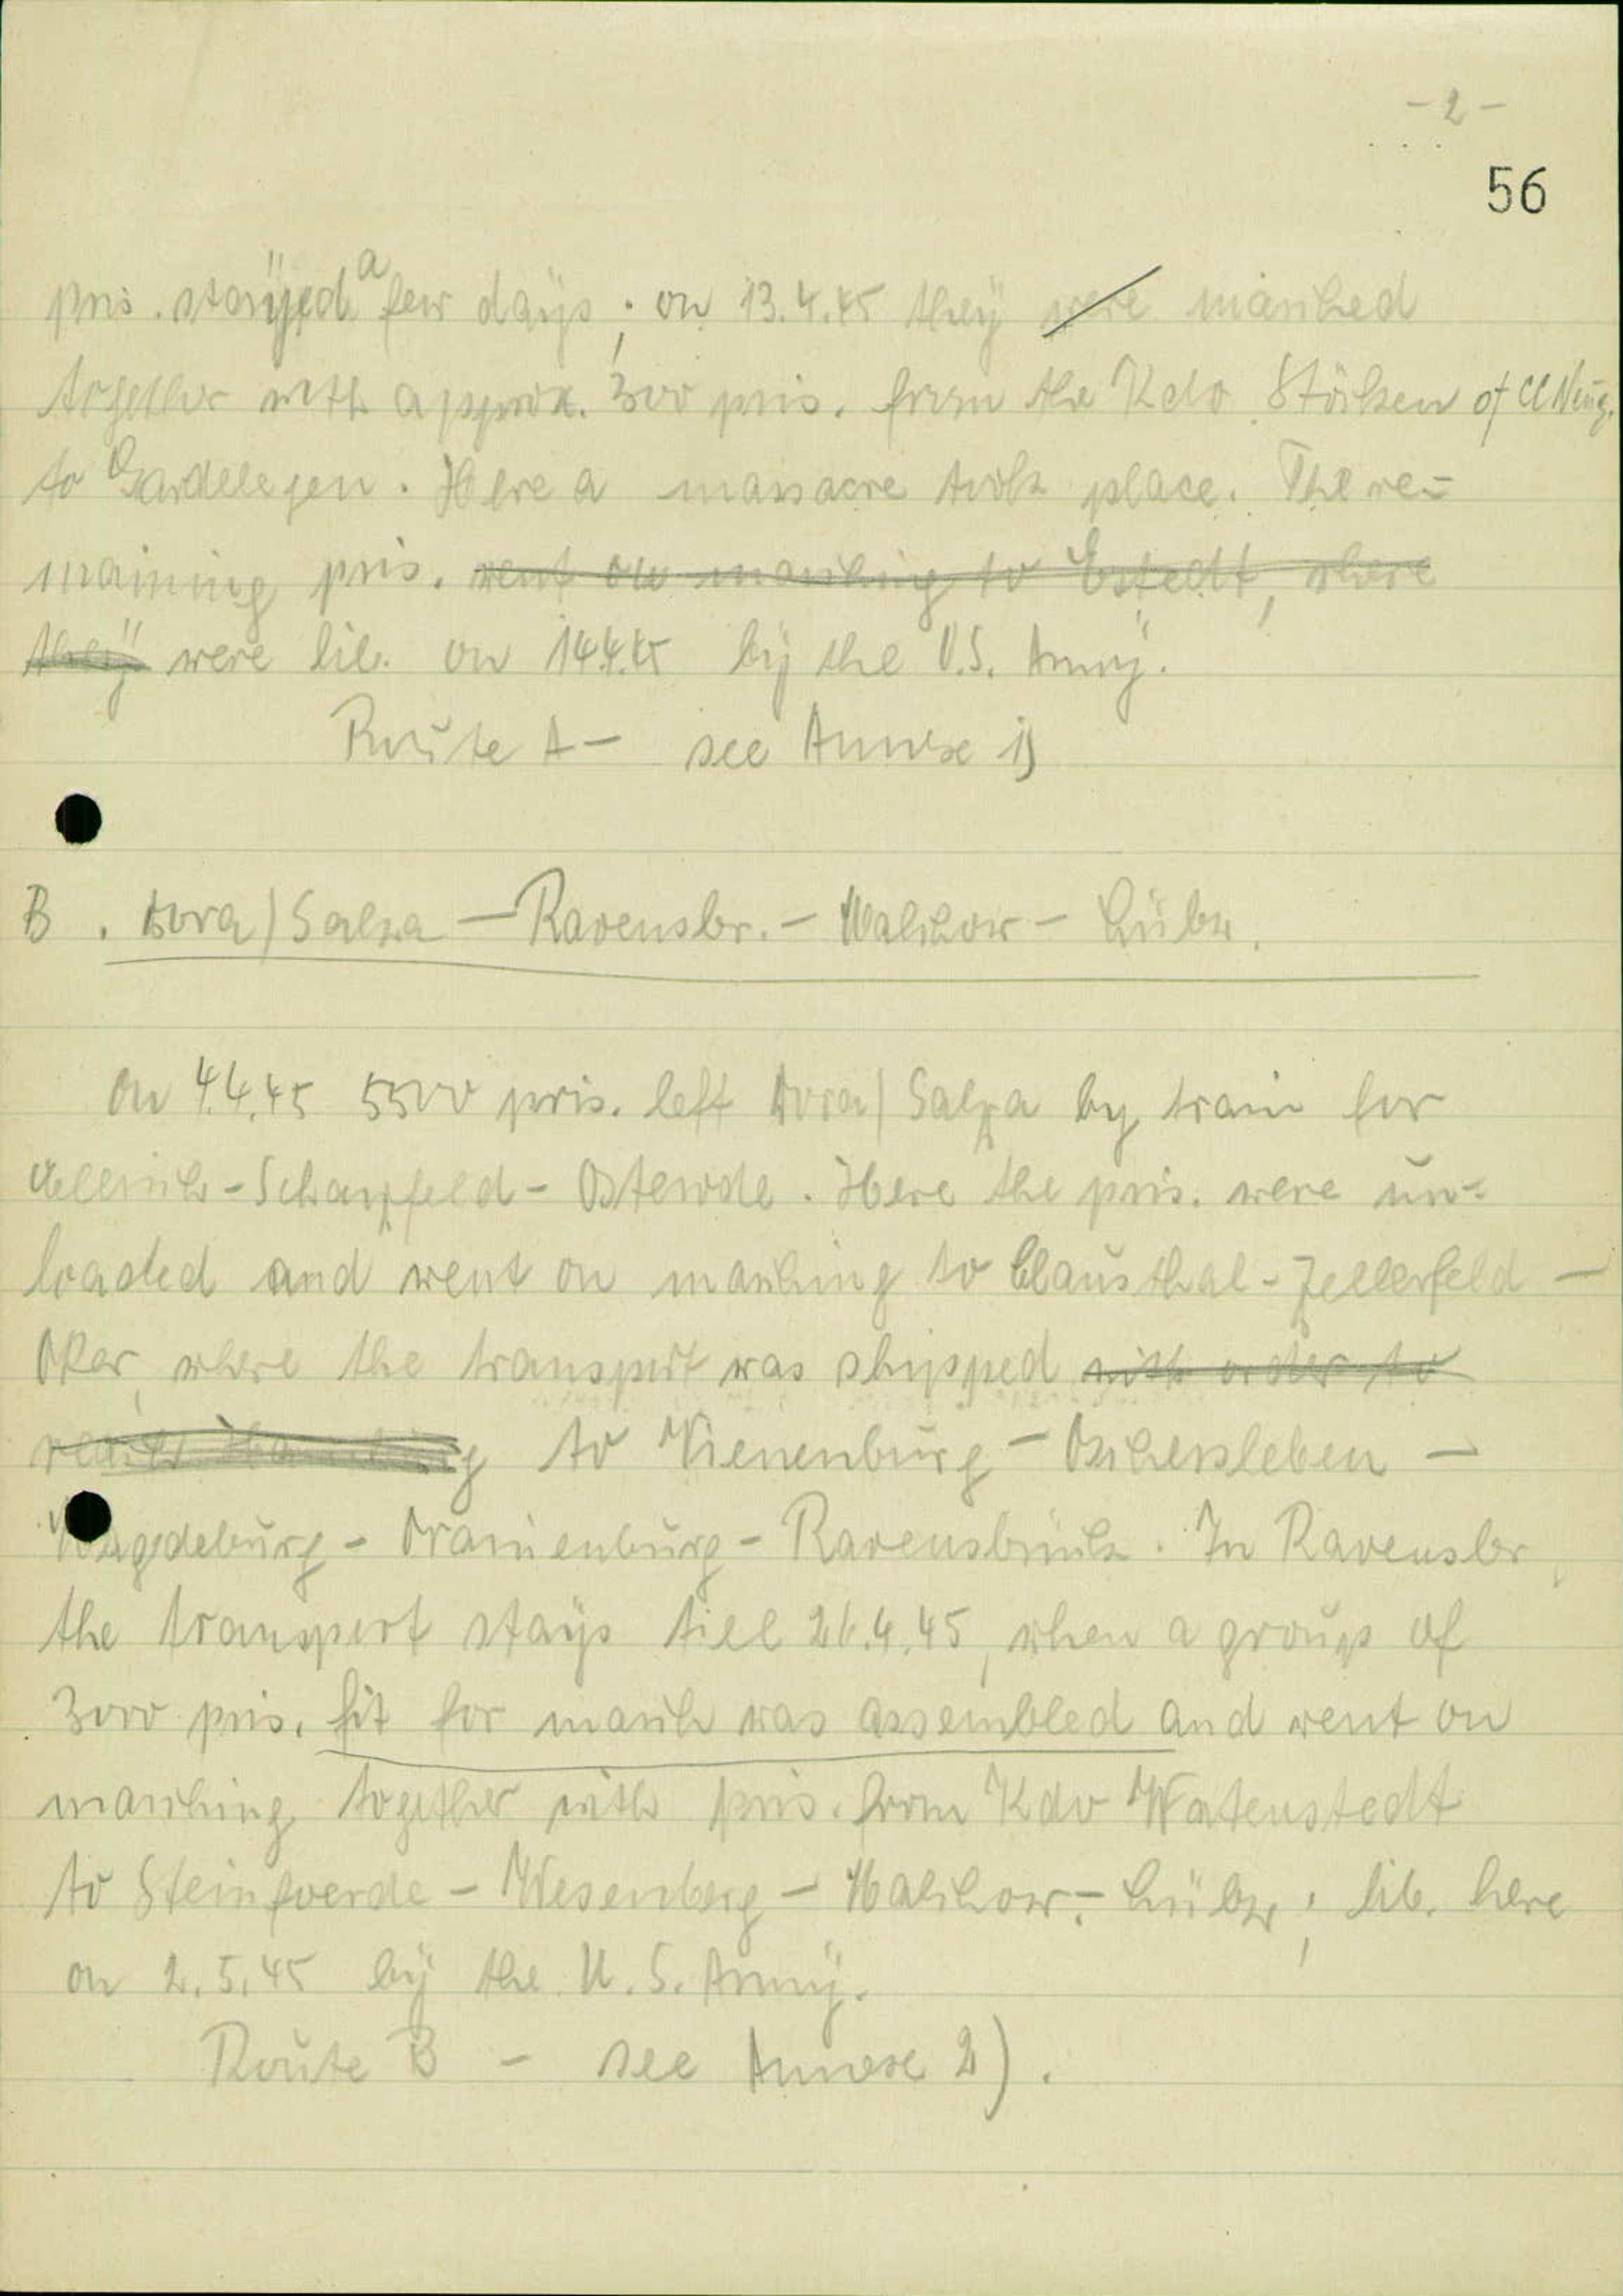 - 2 -
56
pris. stayed a few days; on 13.4.45 they were marched
together with approx. 300 pris. from the Kdo Stöcken of CC Neug.
to Gardelegen. Here a massacre took place. The re-
maining pris. went on marching to Estedt, where
they were lib. on 14.4.45 by the U.S. Army.
Route A - see Annex 1)
B. Dora/Salza - Ravensbr. - Malchow - Lübz.
On 4.4.45 5500 pris. left Dora/Salza by train for
Ellrich - Scharzfeld - Osterode. Here the pris. were un-
loaded and went on marching to Clausthal-Zellerfeld -
Oker, where the transport was shipped with order to
to Vienenburg - Oschersleben -
Magdeburg - Oranienburg - Ravensbrück. In Ravensbr.
the transport stays till 26.4.45, when a group of
3000 pris. fit for march was assembled and went on
marching together with pris. from Kdo Watenstedt
to Steinfoerde - Wesenberg - Malchow - Lübz; lib. here
on 2.5.45 by the U.S. Army.
Route B - see Annex 2).